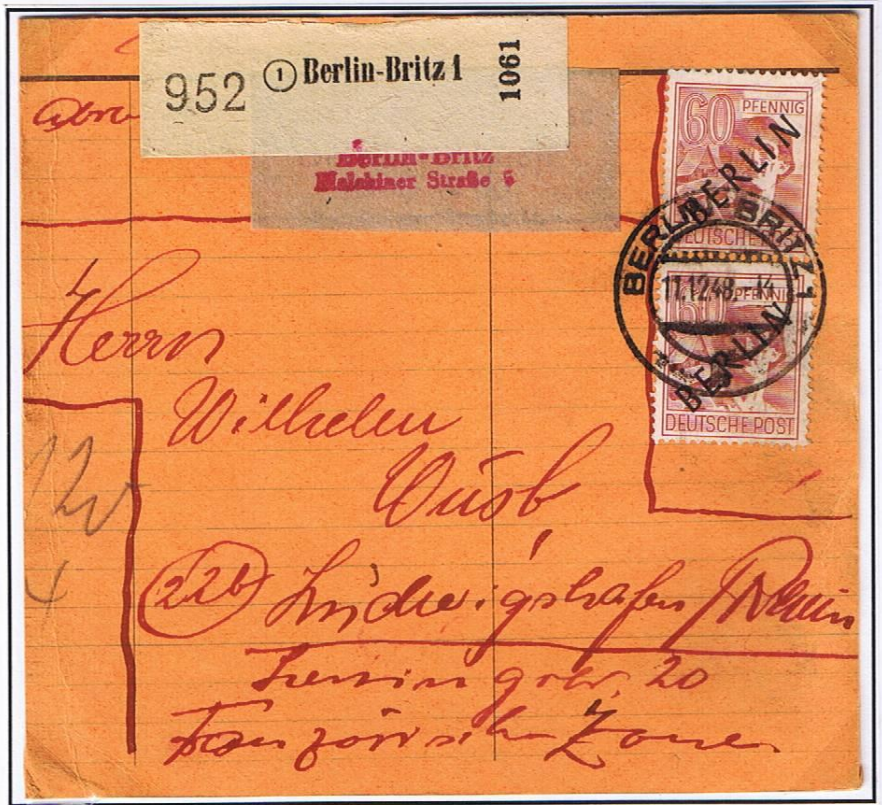 952 1 Berlin-Britz 1 1061
Berlin-Britz
Malchiner Straße 6
60 PFENNIG
BERLIN
DEUTSCHE POST
BERLIN - BRITZ 1
11.12.48.-14
60 PFENNIG
BERLIN
DEUTSCHE POST
Herrn
Wilhelm
Wüsb
12
(22b) Ludwigshafen/Rhein
20
Französische Zone